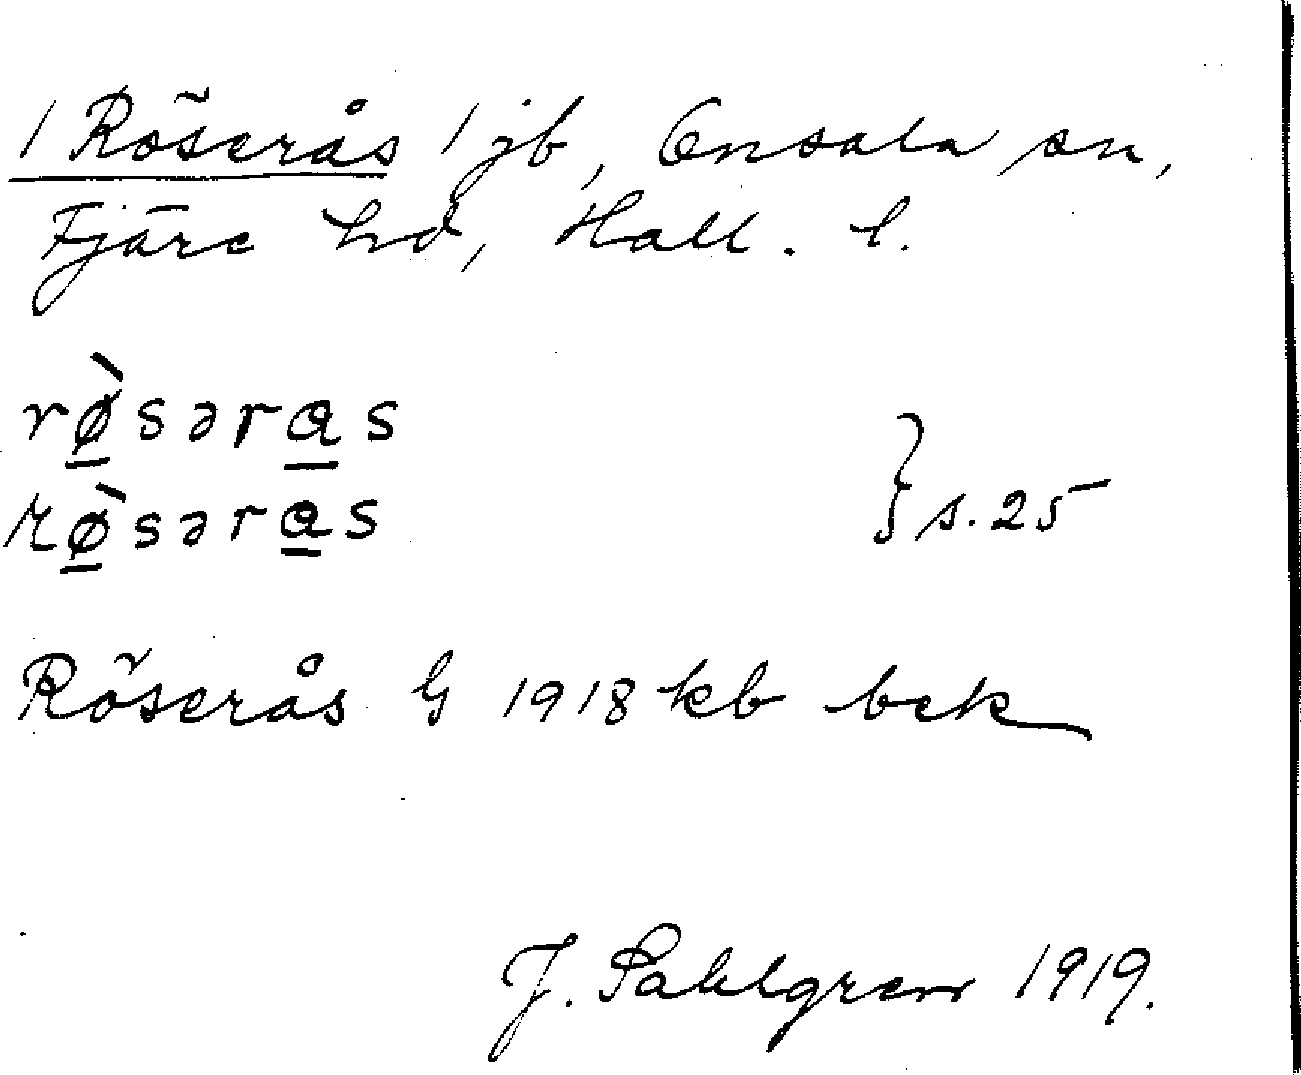 / Röserås / jb, Onsala sn,
Fjäre hd, Hall. l.
rø̀səras
rø̀səras } s. 25
Röserås G 1918 kb bek
J. Sahlgren 1919.